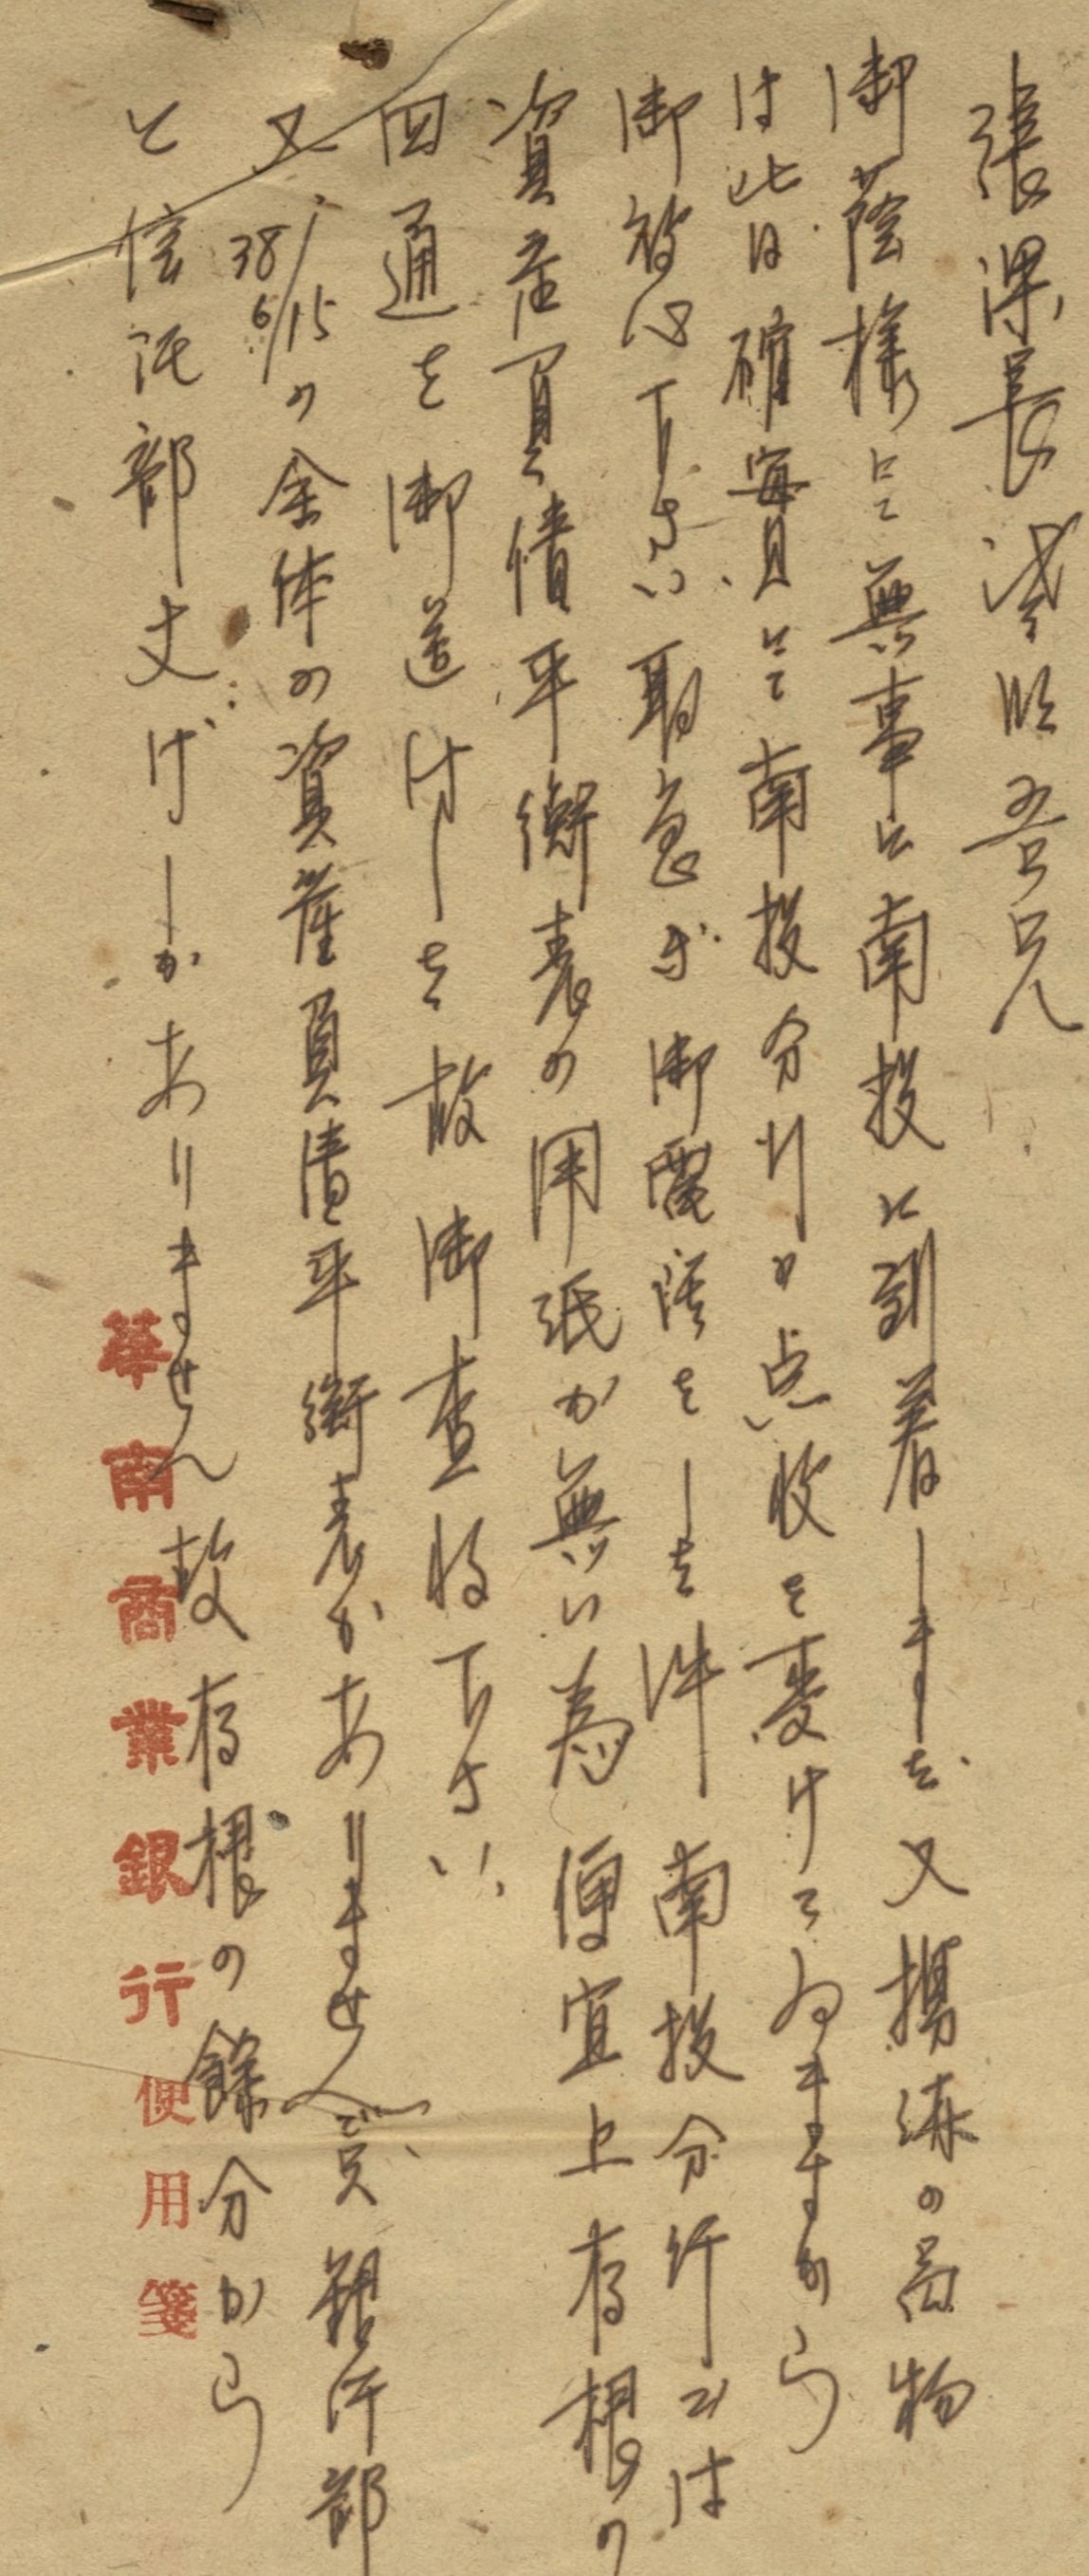 張課長 吾兄
御蔭様にて無事に南投に到着しましだ又携帯の品物
は此は確實にて南投分行の点收を受けてゐますから
御放心下さい 取急ぎ御電話をしを件 南投分行では
資産負債平衡表の用紙が無い為 便宜上存根の
四通を御送付しを故 御查收下さい、
又、38 6/15の全体の資産負債平衡表がありません只銀行部
と信託部丈げしかありません故存根の餘分から
華南商業銀行便用箋